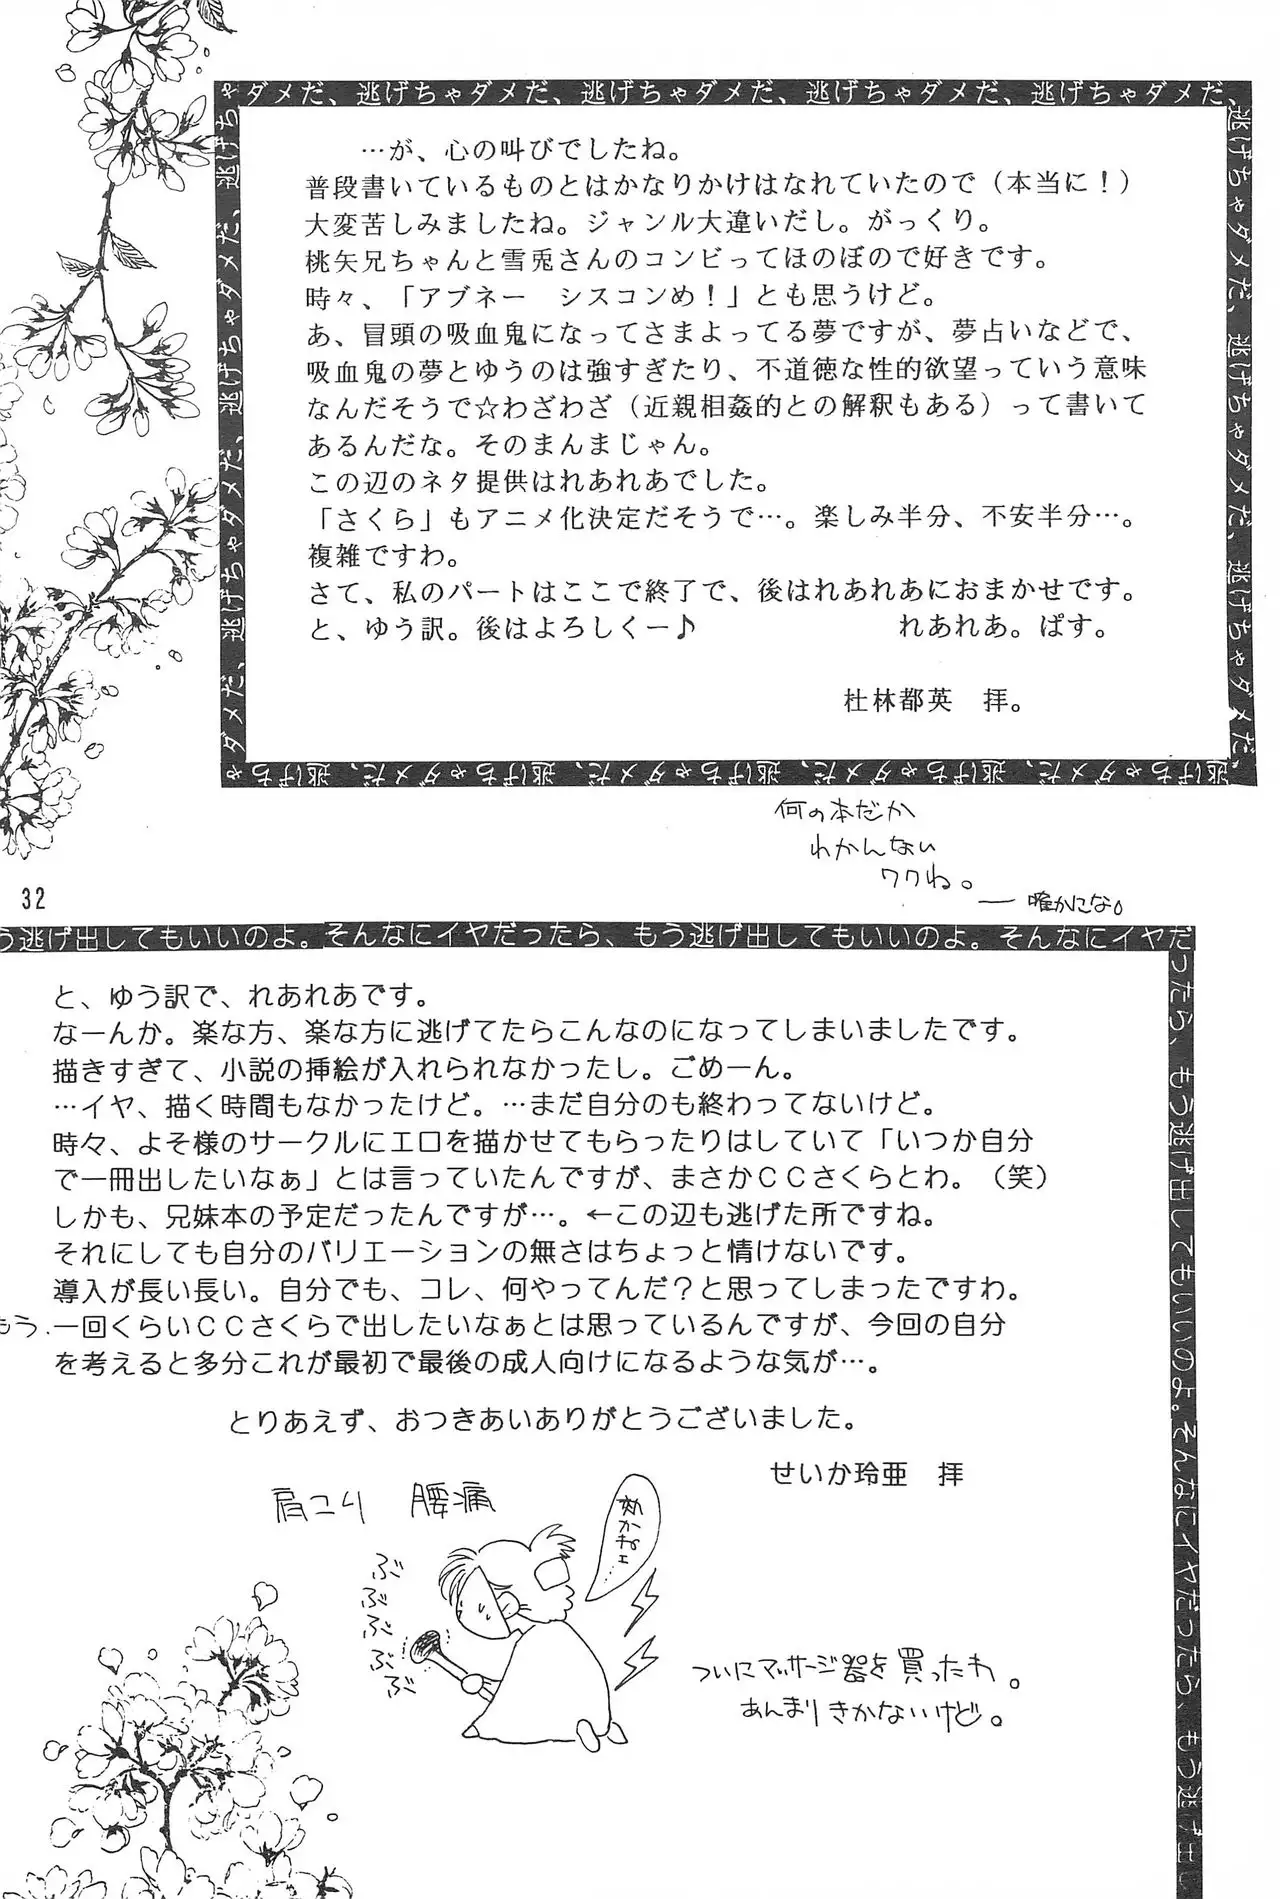 逃げちゃダメだ、逃げちゃダメだ、逃げちゃダメだ、逃げちゃダメだ、
…が、心の叫びでしたね。
普段書いているものとはかなりかけはなれていたので（本当に！）
大変苦しみましたね。ジャンル大違いだし。がっくり。
桃矢兄ちゃんと雪兎さんのコンビってほのぼので好きです。
時々、「アブネー　シスコンめ！」とも思うけど。
あ、冒頭の吸血鬼になってさまよってる夢ですが、夢占いなどで、
吸血鬼の夢とゆうのは強すぎたり、不道徳な性的欲望っていう意味
なんだそうで☆わざわざ（近親相姦的との解釈もある）って書いて
あるんだな。そのまんまじゃん。
この辺のネタ提供はれあれあでした。
「さくら」もアニメ化決定だそうで…。楽しみ半分、不安半分…。
複雑ですわ。
さて、私のパートはここで終了で、後はれあれあにおまかせです。
と、ゆう訳。後はよろしくー♪　れあれあ。ぱす。
杜林都英　拝。
何の本だか
わかんない
ワクね。
― 確かにな。
32
う逃げ出してもいいのよ。そんなにイヤだったら、もう逃げ出してもいいのよ。そんなにイヤだ
ったら、もう逃げ出してもいいのよ。そんなにイヤだったら、もう逃げ出し
と、ゆう訳で、れあれあです。
なーんか。楽な方、楽な方に逃げてたらこんなのになってしまいましたです。
描きすぎて、小説の挿絵が入れられなかったし。ごめーん。
…イヤ、描く時間もなかったけど。…まだ自分のも終わってないけど。
時々、よそ様のサークルにエロを描かせてもらったりはしていて「いつか自分
で一冊出したいなぁ」とは言っていたんですが、まさかＣＣさくらとわ。（笑）
しかも、兄妹本の予定だったんですが…。←この辺も逃げた所ですね。
それにしても自分のバリエーションの無さはちょっと情けないです。
導入が長い長い。自分でも、コレ、何やってんだ？と思ってしまったですわ。
もう.一回くらいＣＣさくらで出したいなぁとは思っているんですが、今回の自分
を考えると多分これが最初で最後の成人向けになるような気が…。
とりあえず、おつきあいありがとうございました。
せいか玲亜　拝
肩こり　腰痛
効かねェ……
ぶぶぶぶぶぶ
ついにマッサージ器を買ったわ。
あんまりきかないけど。